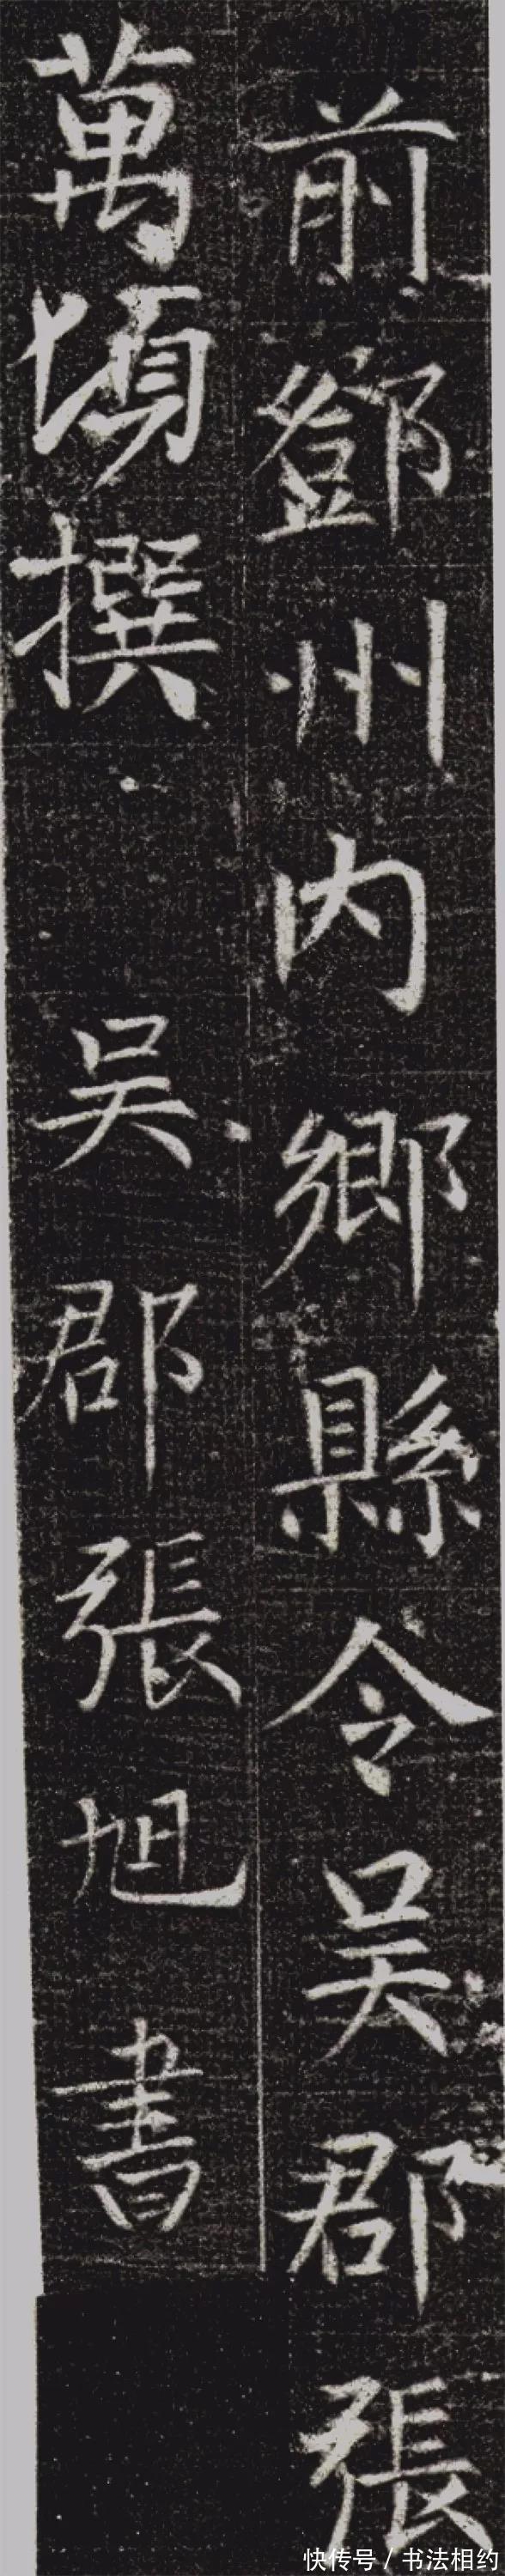 前鄧州内鄉縣令吴郡張
萬頃撰 吴郡張旭書
快传号 / 书法相约